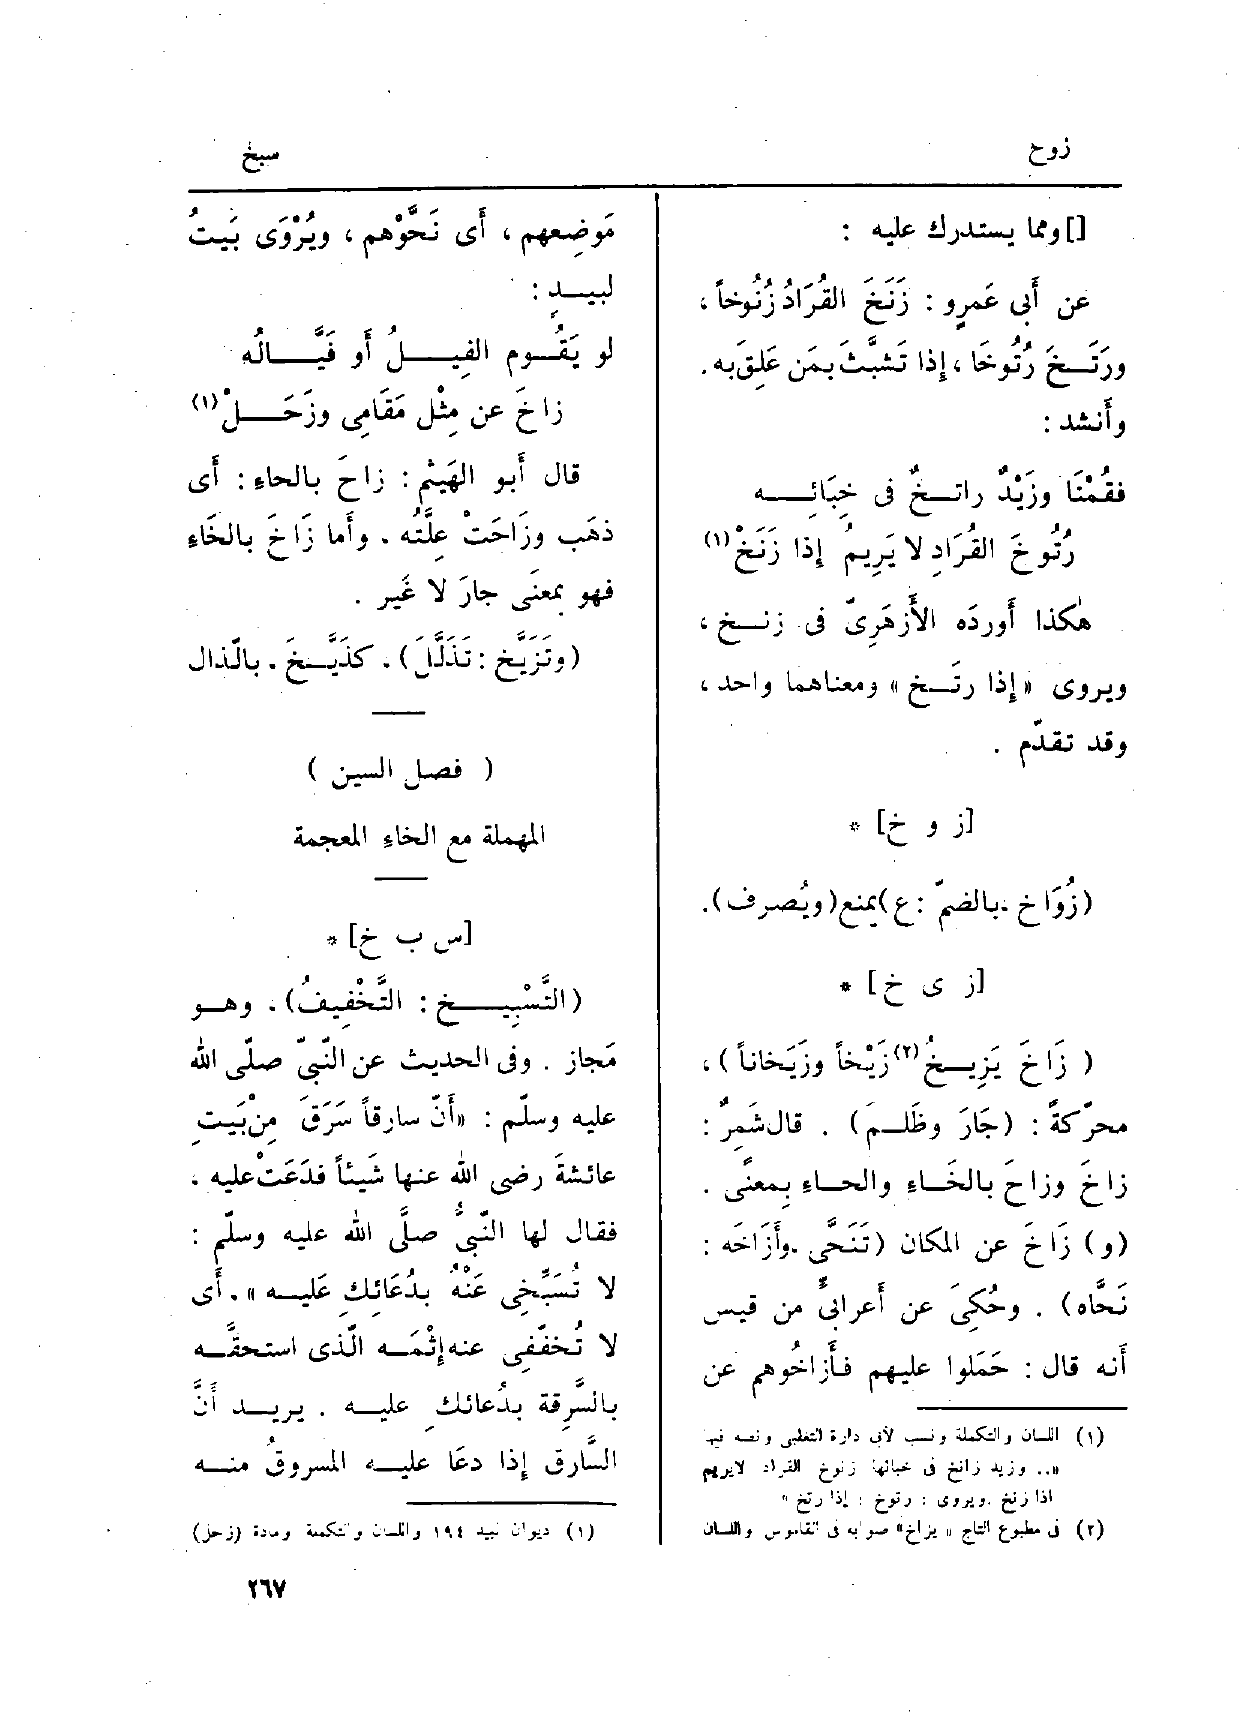 زوخ
سبخ
[] ومما يستدرك عليه :
عن أَبى عَمرٍو : زَنَخَ القُرَادُ زُنُوخاً ،
ورَتَـخَ رُتُوخَا ، إذا تَشبَّثَ بمَن عَلِقَ به .
وأَنشد :
فقُمْنَا وزَيْدٌ راتـخٌ فى خِبَائِـــه
رُتُوخَ القُرَادِ لا يَرِيمُ إذا زَنَخْ (١)
هٰكذا أَوردَه الأَزهَرِىّ فى زنـخ ،
ويروى « إذا رتَـخ » ومعناهما واحد ،
وقد تقدّم .
[ز و خ] *
(زُوَاخ ـ بالضمّ : ع) يمنع (ويُصرف) .
[ز ى خ] *
( زَاخَ يَزِيـخُ (٢) زَيْخاً وزَيَخاناً ) ،
محرّكةً : (جَارَ وظَلـمَ) . قال شَمِرٌ :
زاخَ وزاحَ بالخَـاءِ والحـاءِ بمعنًى .
(و) زَاخَ عن المكان (تَنَحَّى . وأَزَاخَه :
نَحَّاه) . وحُكِىَ عن أَعرابىٍّ من قيس
أَنه قال : حَمَلوا عليهم فأَزاخُوهم عن
(١) اللسان والتكملة ونسب لأبى دارة التغلبى ونصه فيها
«.. وزيد زانخ فى خبائها زنوخ القراد لايريم
اذا زنخ . ويروى : رتوخ : إذا رتخ »
(٢) فى مطبوع التاج « يزاخ » صوابه فى القاموس واللسان
مَوضِعهم ، أَى نَحَّوْهم ، ويُرْوَى بَيتُ
لبيـــدٍ :
لو يَقُـوم الفِيـــلُ أَو فَيَّـــالُه
زاخَ عن مِثْل مَقَامِى وزَحَـــلْ (١)
قال أَبو الهَيثم : زاحَ بالحاءِ : أَى
ذهَب وزَاحَتْ عِلَّتُه . وأَما زَاخَ بالخَاءِ
فهو بمعنَى جارَ لا غَير .
(وتَزَيَّخ : تَذَلَّلَ) . كذَيَّـخَ . بالّذال
( فصل السين )
المهملة مع الخاء المعجمة
[س ب خ] *
(التَّسْبِيـــخ : التَّخْفِيفُ) . وهـو
مَجاز . وفى الحديث عن النّبىّ صلّى الله
عليه وسلّم : «أَنّ سارقاً سَرَقَ مِنْ بَيتِ
عائشةَ رضى الله عنها شَيئاً فدَعَتْ عليه ،
فقال لها النّبىُّ صلَّى الله عليه وسلّم :
لا تُسَبِّخِى عَنْهُ بدُعَائِك عَليـــه » . أَى
لا تُخفِّفِى عنه إثْمَـــه الّذى استحقَّـه
بالسَّرِقة بدُعائك عليـــه . يريـــد أَنَّ
السَّارق إذا دعَا عليـــه المسروقُ منـــه
(١) ديوان لبيد ١٩٤ واللسان والتكملة ومادة (زحل)
٢٦٧